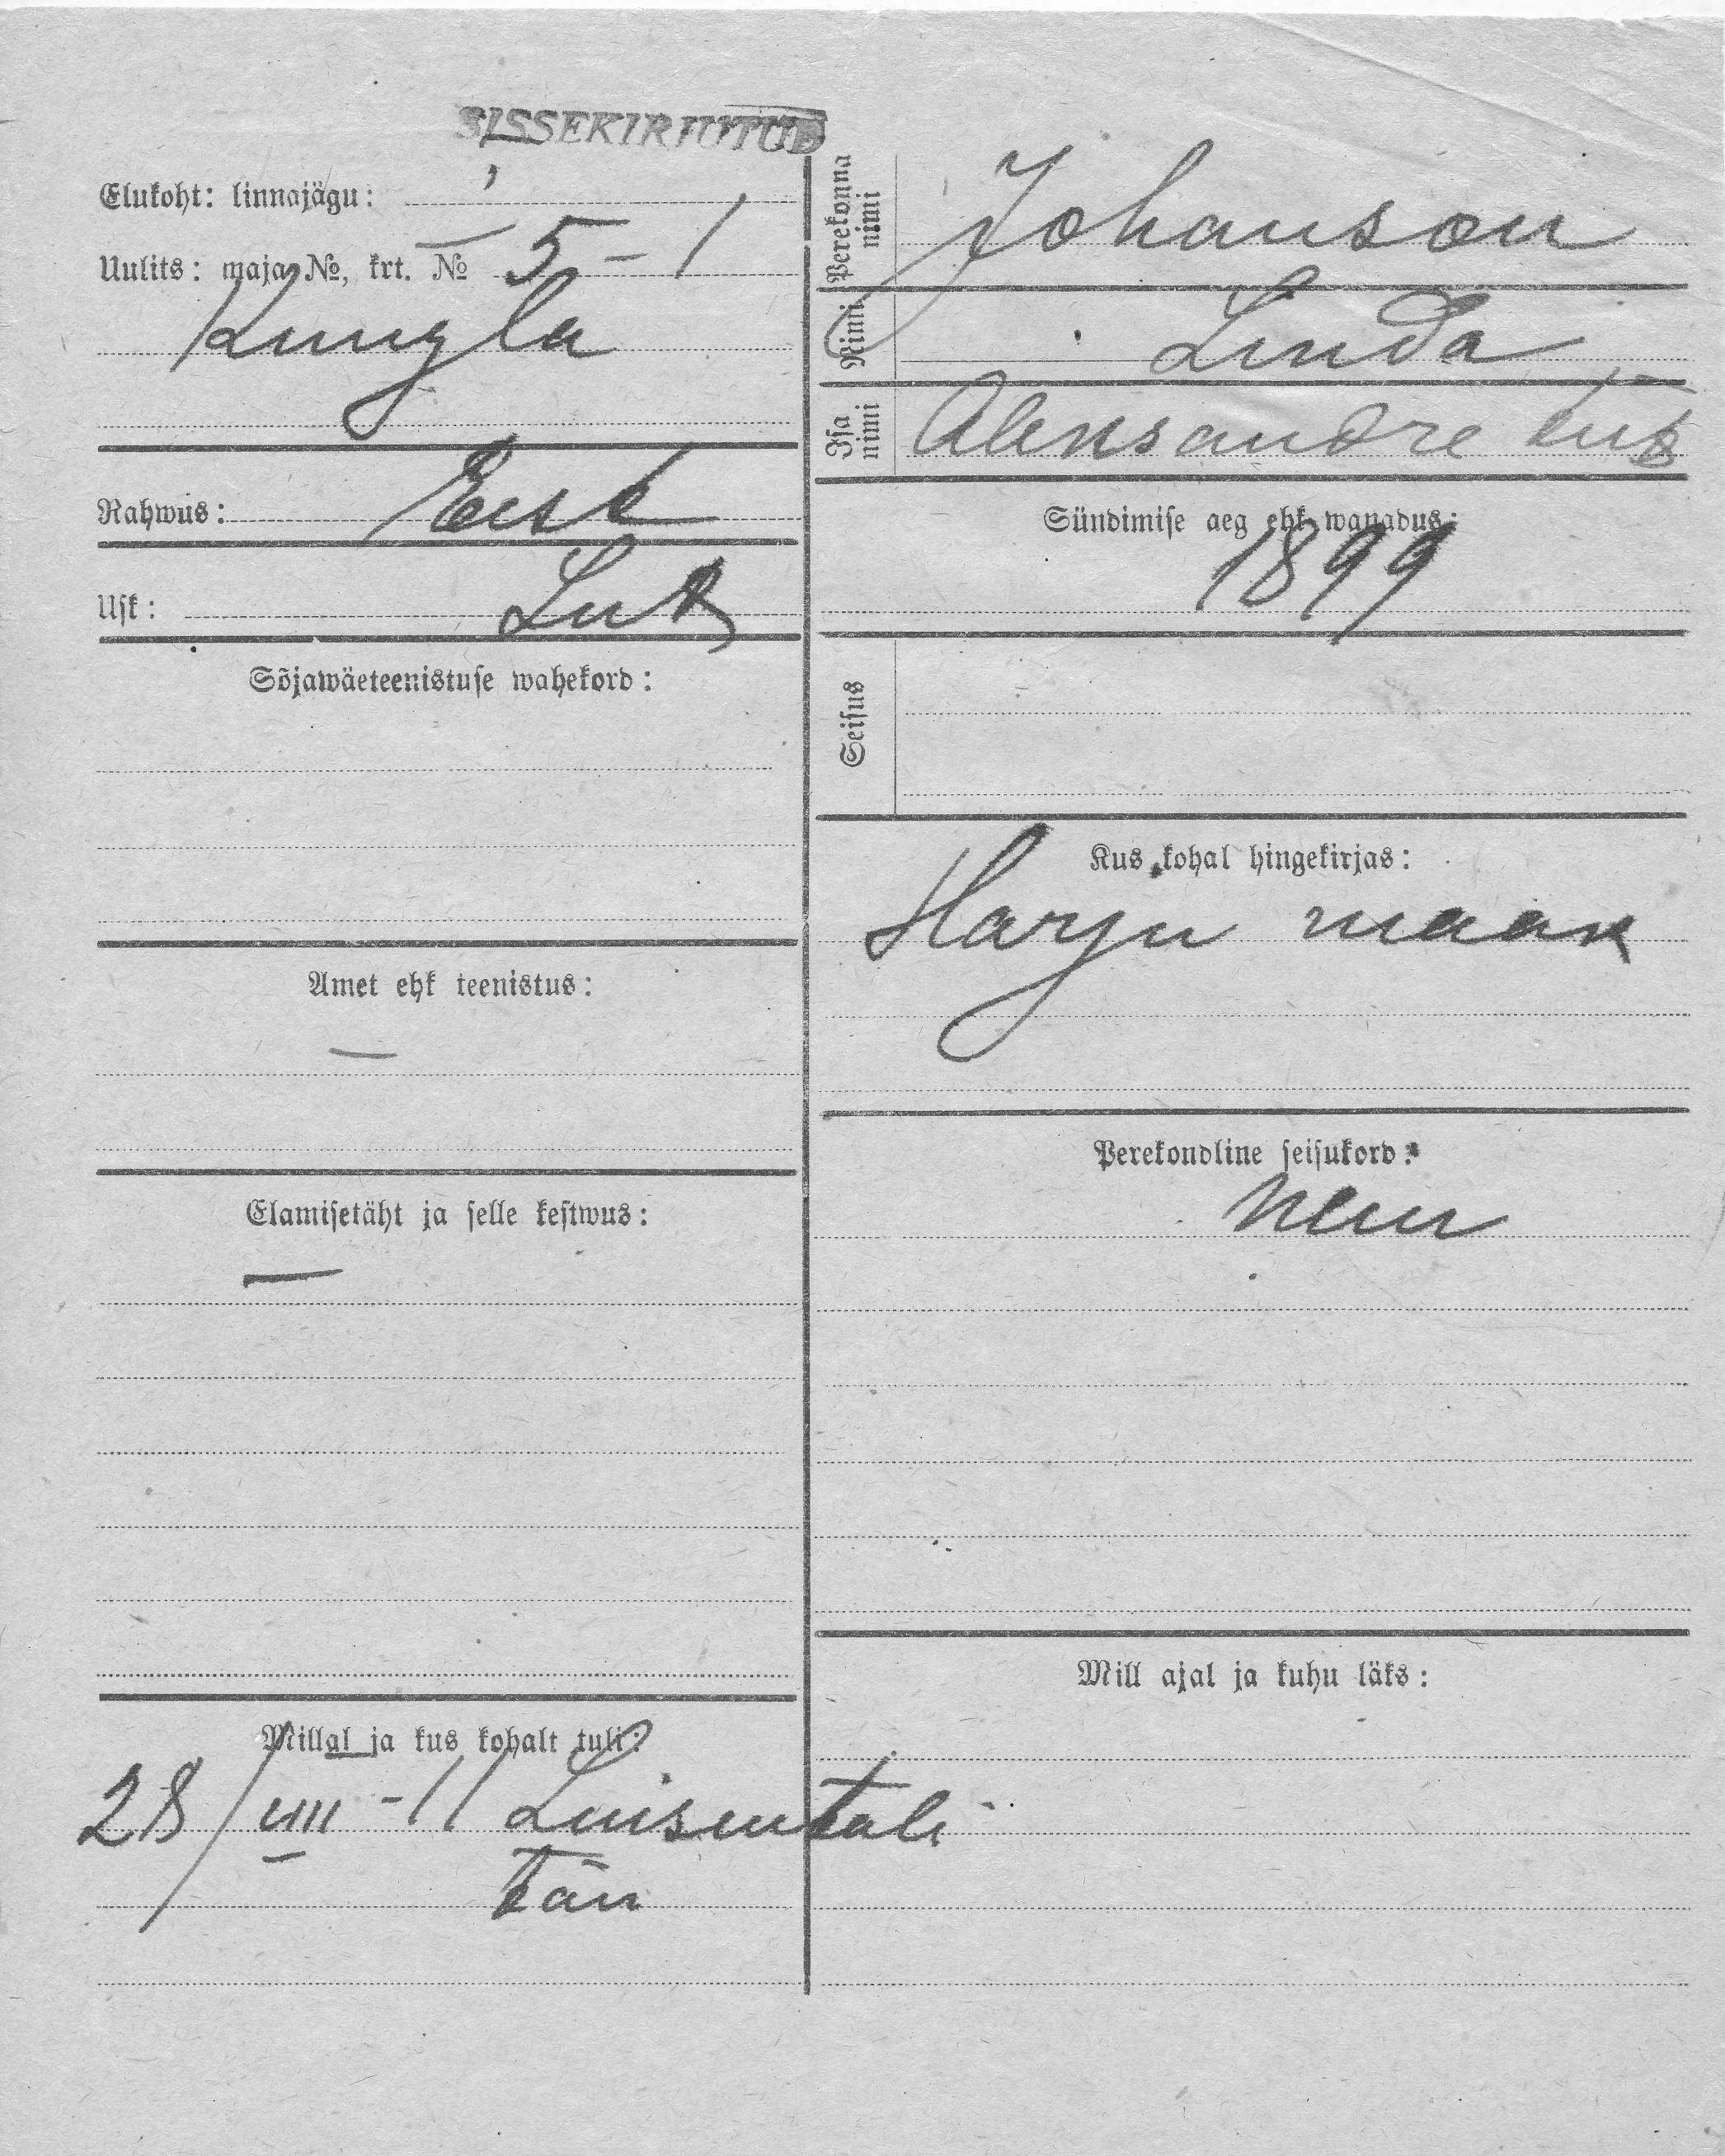 SISSEKIRJUTUD
Elukoht: linnajägu:
Uulits: maja №, krt. № 5 - 1
Kungla
Rahwus: Eest
Usk: Lut
Sõjawäeteenistuse wahekord:
Amet ehk teenistus:
—
Elamisetäht ja selle kestwus:
—
Millal ja kus kohalt tuli:
28/VIII - 11 Luisentali
tän
Perekonna nimi Johanson
Nimi Linda
Isa nimi Aleksandre
Sündimise aeg ehk wanadus:
1899
Seisus
Kus kohal hingekirjas:
Harju maak
Perekondline seisukord:
Neiu
Mill ajal ja kuhu läks: